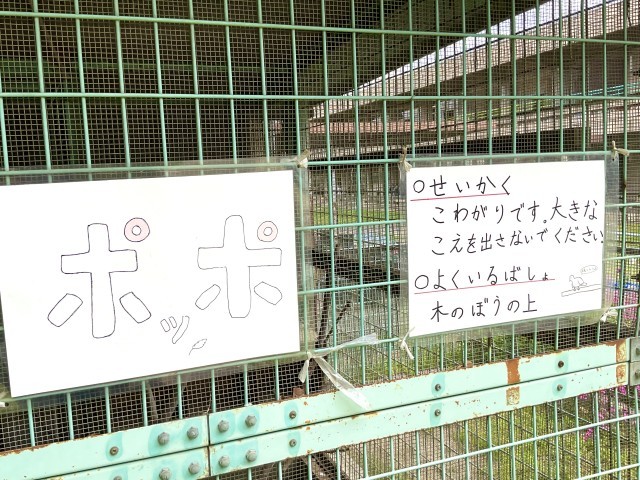 ポポ
○せいかく
こわがりです。大きな
こえを出さないでください
○よくいるばしょ
木のぼうの上